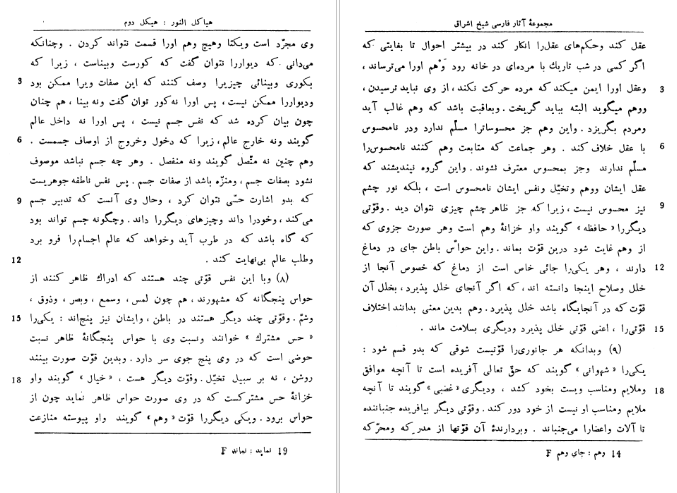 هیاکل النور : هیکل دوم
وی مجرّد است ویکتا وهیچ وهم اورا قسمت نتواند کردن . وچنانکه
می‌دانی که دیواررا نتوان گفت که کورست وبیناست ، زیرا که
3 بکوری وبینائی چیزیرا وصف کنند که این صفات ویرا ممکن بود
ودیواررا ممکن نیست ، پس اورا نه‌کور توان گفت ونه بینا ، هم چنان
چون بیان کرده شد که نفس جسم نیست ، پس اورا نه داخل عالم
6 گویند ونه خارج عالم ، زیرا که دخول وخروج از اوصاف جسمست .
وهم چنین نه متّصل گویند ونه منفصل . وهر چه جسم نباشد موصوف
نشود بصفات جسم ، ومنزّه باشد از صفات جسم . پس نفس ناطقه جوهریست
9 که بدو اشارت حسّی نتوان کرد ، وحال وی آنست که تدبیر جسم
می‌کند ، وخودرا داند وچیزهای دیگررا داند . وچگونه جسم تواند بود
که گاه باشد که در طرب آید وخواهد که عالم اجسام‌را فرو برد
12 وطلب عالم بی‌نهایت کند .
(۸) وبا این نفس قوّتی چند هستند که ادراك ظاهر کنند از
حواس پنجگانه که مشهورند ، هم چون لمس ، وسمع ، وبصر ، وذوق ،
15 وشمّ . وقوّتی چند دیگر هستند در باطن ، وایشان نیز پنج‌اند : یکی‌را
« حس مشترك » خوانند ونسبت وی با حواس پنجگانهٔ ظاهر نسبت
حوضی است که در وی پنج جوی سر دارد . وبدین قوّت صورت بینند
18 روشن ، نه بر سبیل تخیّل . وقوّت دیگر هست ، « خیال » گویند واو
خزانهٔ حس مشترکست که در وی صورت حواس ظاهر نماید چون از
حواس برود . ویکی دیگررا قوّت « وهم » گویند واو پیوسته منازعت
19 نماید : نماند F
مجموعهٔ آثار فارسی شیخ اشراق
عقل کند وحکم‌های عقل‌را انکار کند در بیشتر احوال تا بغایتی که
اگر کسی در شب تاریك با مرده‌ای در خانه رود وَهم اورا می‌ترساند ،
3 وعقل اورا ایمن میکند که مرده حرکت نکند ، از وی نباید ترسیدن ،
ووهم میگوید البته بباید گریخت . وبعاقبت باشد که وهم غالب آید
ومردم بگریزد . واین وهم جز محسوساترا مسلّم ندارد ودر نامحسوس
6 با عقل خلاف کند . وهر جماعت که متابعت وهم کنند نامحسوس‌را
مسلّم ندارند وجز بمحسوس معترف نشوند . واین گروه نیندیشند که
عقل ایشان ووهم وتخیّل ونفس ایشان نامحسوس است ، بلکه نور چشم
9 نیز محسوس نیست ، زیرا که جز ظاهر چشم چیزی نتوان دید . وقوّتی
دیگررا « حافظه » گویند واو خزانهٔ وهم است وهر صورت جزوی که
از وهم غایت شود درین قوّت بماند . واین حواسّ باطن جای در دماغ
12 دارند ، وهر یکی‌را جائی خاص است از دماغ که خصوص آنجا از
خلل وصلاح اینجا دانسته اند ، که اگر آنجای خلل پذیرد ، بخلل آن
قوّت که در آنجایگاه باشد خلل پذیرد . وهم بدین معنی بدانند اختلاف
15 قوّتی‌را ، اعنی قوّتی خلل پذیرد ودیگری بسلامت ماند .
(۹) وبدانکه هر جانوری‌را قوّتیست شوقی که بدو قسم شود :
یکی‌را « شهوانی » گویند که حقّ تعالی آفریده است تا آنچه موافق
18 وملایم ومناسب ویست بخود کشد ، ودیگری « غضبی » گویند تا آنچه
ملایم ومناسب او نیست از خود دور کند . وقوّتی دیگر بیافریده جنبانندهٔ
تا آلات واعضارا می‌جنباند . وبردارندهٔ آن قوّتها از مدرکه ومحرّکه
14 وهم : جای وهم F